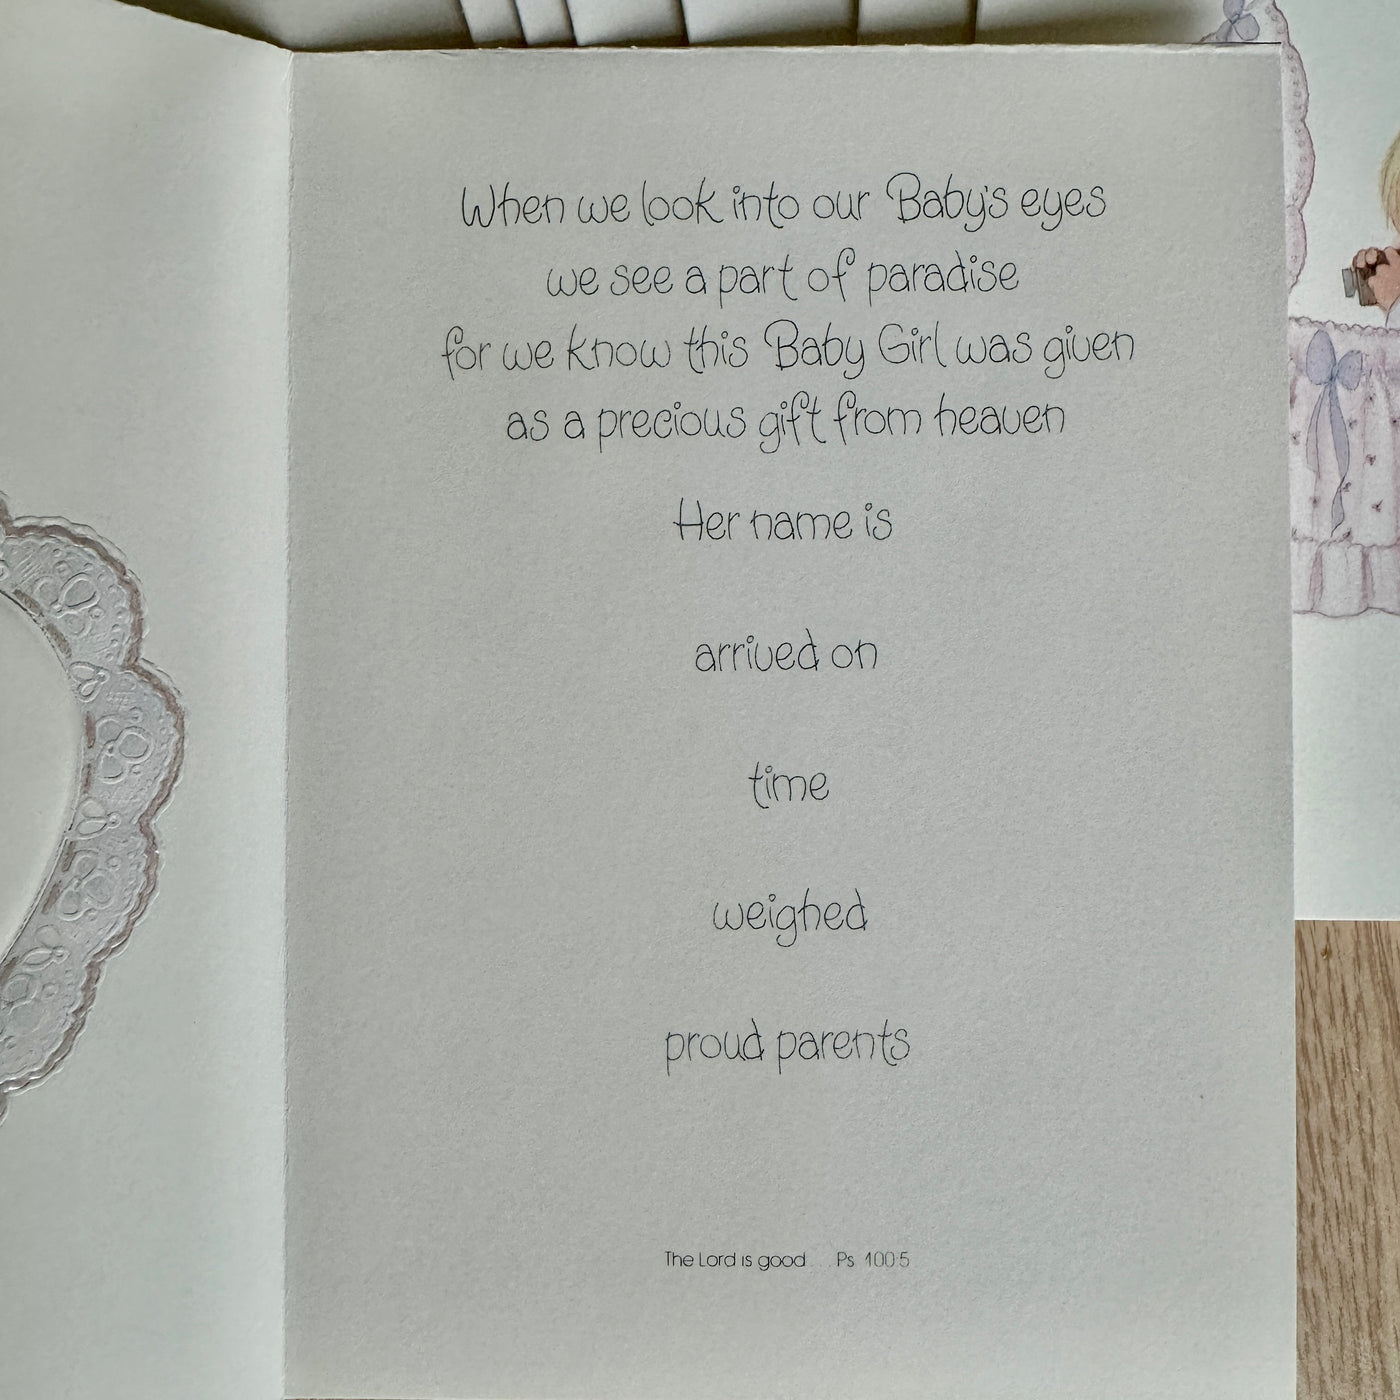 When we look into our Baby's eyes
we see a part of paradise
for we know this Baby Girl was given
as a precious gift from heaven
Her name is
arrived on
time
weighed
proud parents
The Lord is good Ps 100:5